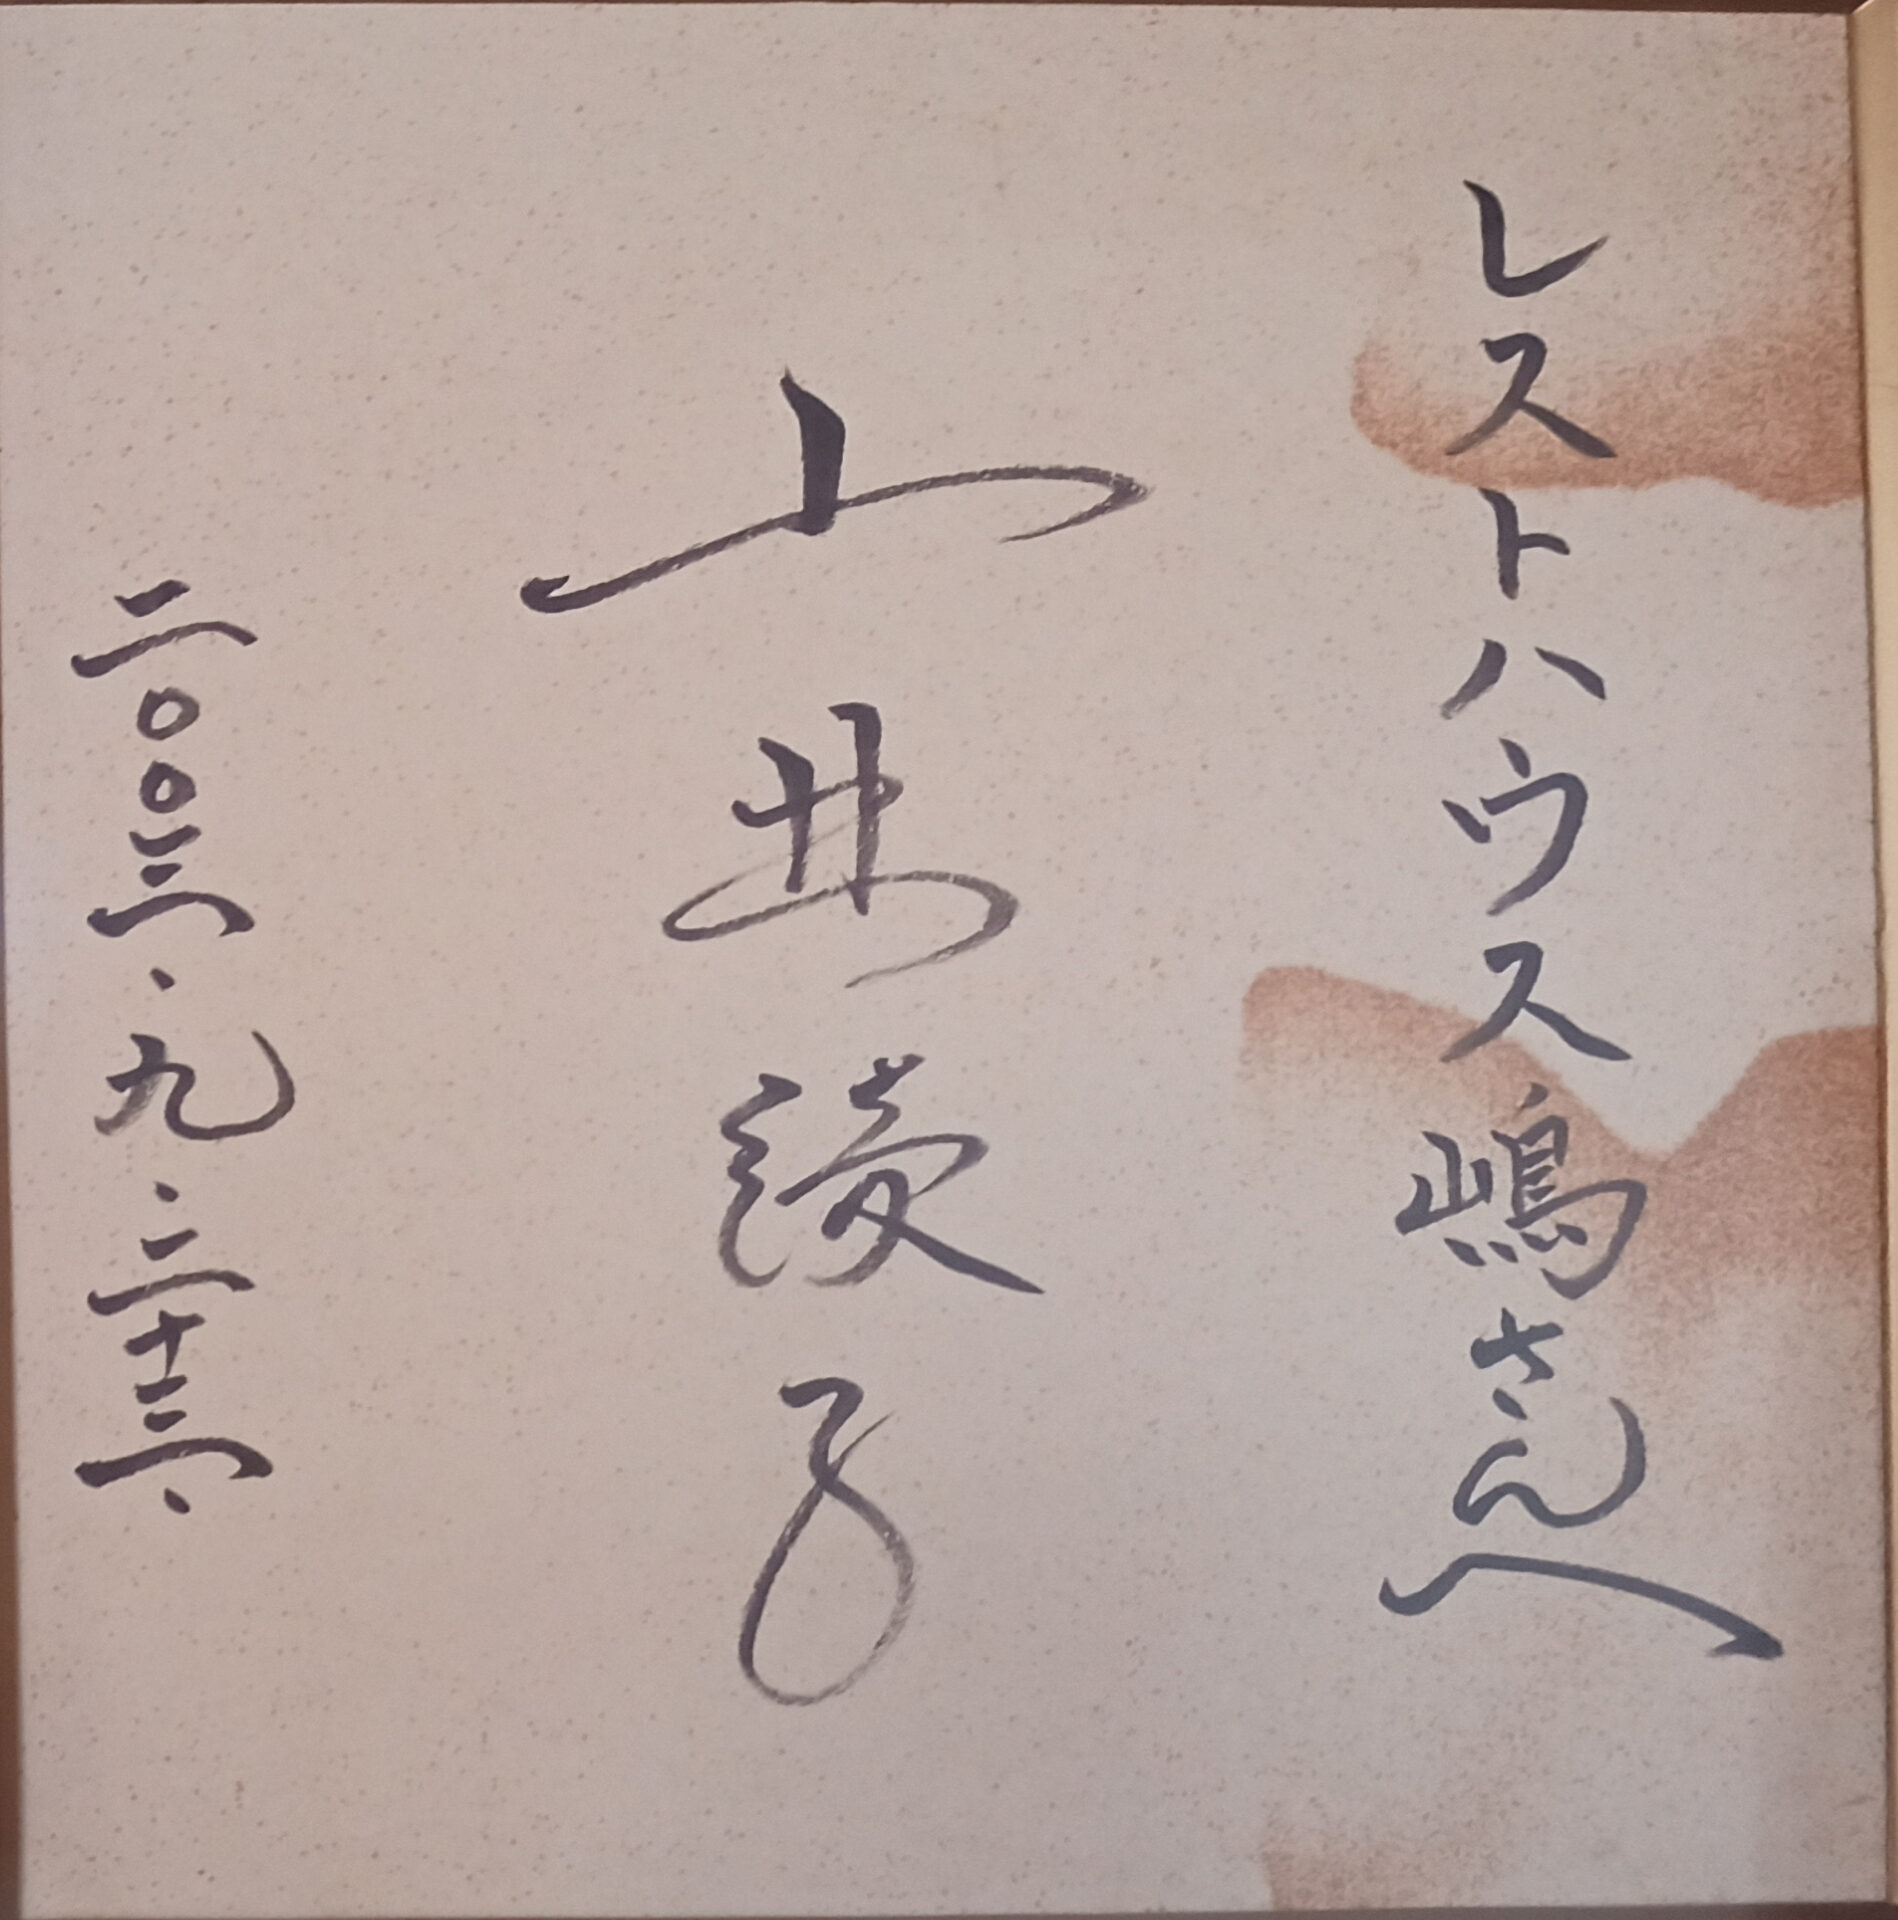 レストハウス嶋さんへ
山井綾子
二〇〇三.九.二十三.